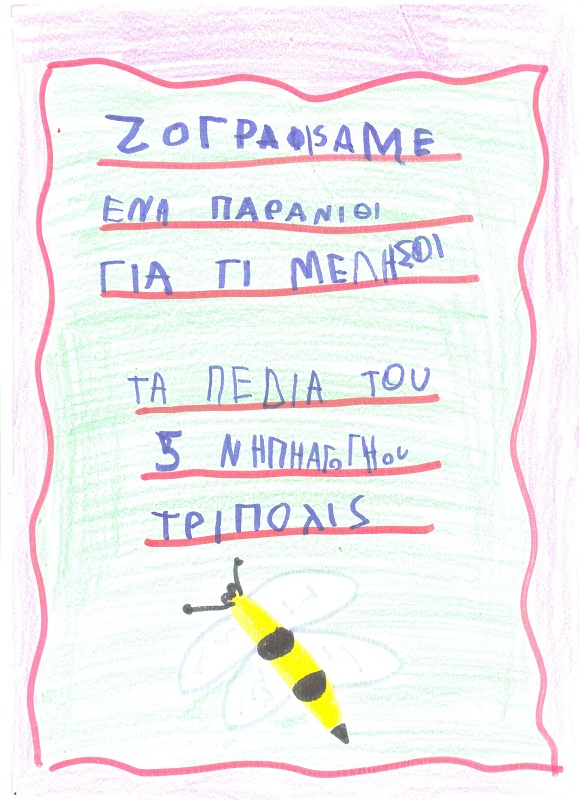 ΖΟΓΡΑΦΙSΑΜΕ
ΕΝΑ ΠΑΡΑΝΙΘΙ
ΓΙΑ ΤΙ ΜΕΛΗΣΟΙ
ΤΑ ΠΕΔΙΑ ΤΟΥ
5 ΝΗΠΗΑΓΟΓΗΟυ
ΤΡΙΠΟΛΙS